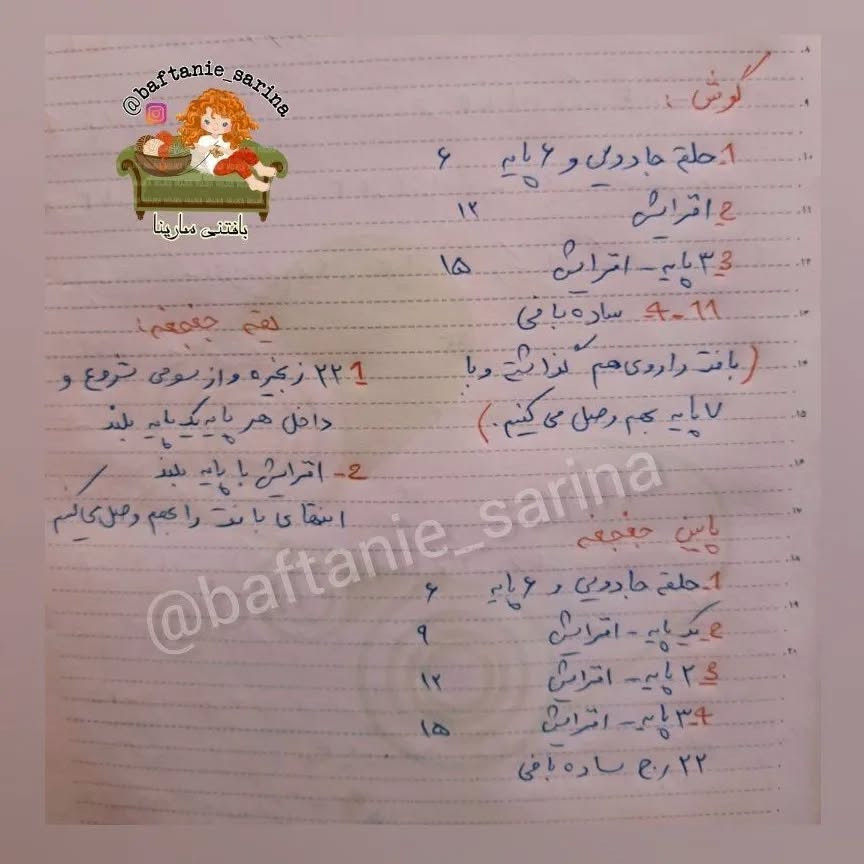 @baftanie_sarina
بافتنی سارینا
گوش :
1. حلقه جادویی و ۶ پایه ۶
2 افزایش ۱۲
3 ۳ پایه - افزایش ۱۵
4-11 ساده بافی
(بافت را روی هم گذاشته و با
۷ پایه بهم وصل می کنیم.)
یقه جغجغه:
1 ۲۲ زنجیره و از سومی شروع و
داخل هر پایه یک پایه بلند
2- افزایش با پایه بلند
انتهای بافت را بهم وصل می کنیم
پایین جغجغه
1. حلقه جادویی و ۶ پایه ۶
2 یک پایه - افزایش ۹
3 ۲ پایه - افزایش ۱۲
4- ۳ پایه - افزایش ۱۵
۲۲ رج ساده بافی
@baftanie_sarina